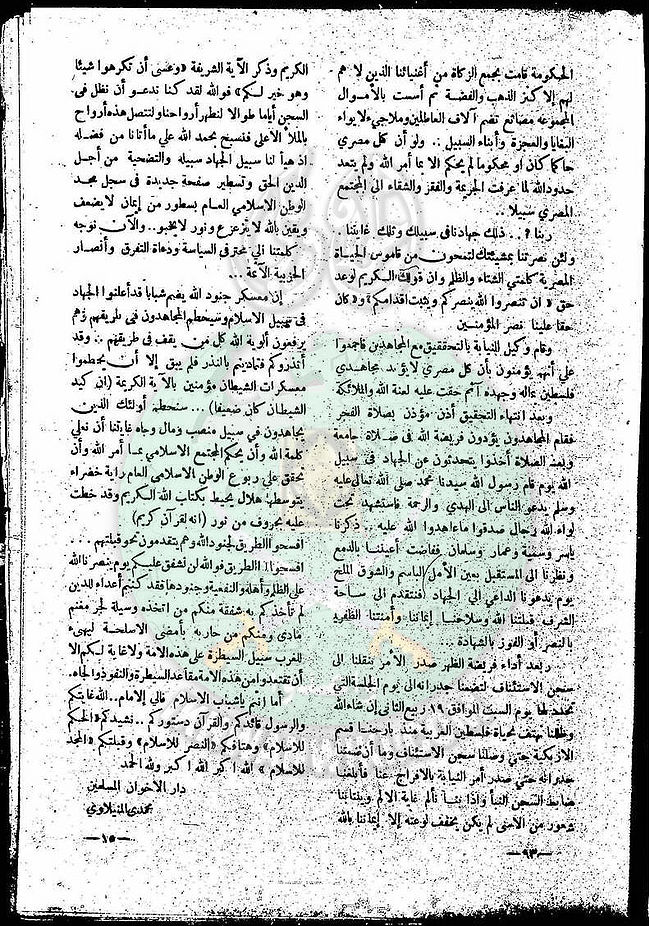 الحكومة قامت بجمع الزكاة من أغنيائنا الذين لا هم
لهم إلا كنز الذهب والفضة ثم أسست بالأموال
المجموعة مصانع تضم آلاف العاطلين وملاجىء لايواء
البغايا والعجزة وأبناء السبيل .. ولو أن كل مصري
حاكما كان او محكوما لم يحكم الا بما أمر الله ولم يتعد
حدود الله لما عرفت الجريمة والفقر والشقاء الي المجتمع
المصري سبيلا ..
ربنا .. ذلك جهادنا في سبيلك وتلك غايتنا .
ولئن نصرتنا بمشيئتك لتمحون من قاموس الحياة
المصرية كلمتي الشقاء والظلم وان قولك الكريم لوعد
حق « ان تنصروا الله ينصركم ويثبت اقدامكم » و « كان
حقا علينا نصر المؤمنين
وقام وكيل النيابة بالتحقيق مع المجاهدين فاجمعوا
علي أنهم يؤمنون بأن كل مصري لا يؤيد مجاهدي
فلسطين بماله وجهده آثم حقت عليه لعنة الله والملائكة
وبعد انتهاء التحقيق أذن مؤذن بصلاة الفجر
فقام المجاهدون يؤدون فريضة الله في صلاة جامعة
وبعد الصلاة أخذوا يتحدثون عن الجهاد في سبيل
الله يوم قام رسول الله سيدنا محمد صلي الله تعالى عليه
وسلم يدعو الناس الي الهدي والرحمة فاستشهد تحت
لواء الله رجال صدقوا ما عاهدوا الله عليه .. ذكرنا
ياسر وسمية وعمار وسلمان ففاضت أعيننا بالدمع
ونظرنا الي المستقبل بعين الأمل الباسم والشوق الملح
يوم يدعونا الداعي الي الجهاد فنتقدم الي ساحة
الشرف قبلتنا الله وسلاحنا إيماننا وأمنيتنا الظفر
بالنصر أو الفوز بالشهادة ...
وبعد أداء فريضة الظهر صدر الأمر بنقلنا الى
سجن الاستئناف لتضمنا جدرانه الى يوم الجلسة التي
تحدد لها يوم السبت الموافق ١٩ ربيع الثاني إن شاء الله
وظللنا نهتف بحياة فلسطين العربية منذ بارحنا قسم
الازبكية حتي وصلنا سجن الاستئناف وما أن ضمتنا
جدرانه حتي صدر أمر النيابة بالافراج عنا فأبلغنا
ضابط السجن النبأ واذا بنا نألم غاية الالم وينتابنا
شعور من الاسى لم يكن يخفف لوعته إلا إيماننا بالله
—٩٣—
الكريم وذكر الآية الشريفة « وعسى أن تكرهوا شيئا
وهو خير لكم » فوالله لقد كنا ندعو أن نظل في
السجن أياما طوالا لنطهر أرواحنا ولتتصل هذه أرواح
بالملأ الأعلى فنسبح بحمد الله علي ما أتانا من فضله
اذ هيأ لنا سبيل الجهاد سبيله والتضحية من أجل
الدين الحق وتسطير صفحة جديدة في سجل مجد
الوطن الاسلامي العام بسطور من إيمان لا يضعف
ويقين بالله لا يتزعزع ونور لا يخبو .. والآن نوجه
كلمتنا الي محترفي السياسة ودعاة التفرق وأنصار
الحزبية الآثمة ...
إن معسكر جنود الله يضم شبابا قد أعلنوا الجهاد
في سبيل الاسلام وسيحطم المجاهدون في طريقهم وهم
يرفعون ألوية الله كل من يقف في طريقهم .. وقد
أنذروكم فتماديتم بالنذر فلم يبق إلا أن يحطموا
معسكرات الشيطان مؤمنين بالآية الكريمة (ان كيد
الشيطان كان ضعيفا) ... سنحطم أولئك الذين
يجاهدون في سبيل منصب ومال وجاه غايتنا أن نعلي
كلمة الله وأن يحكم المجتمع الاسلامي بما أمر الله وأن
تخفق علي ربوع الوطن الاسلامي العام راية خضراء
يتوسطها هلال يحيط بكتاب الله الكريم وقد خطت
عليه بحروف من نور (انه لقرآن كريم)
افسحوا الطريق لجنود الله وهم يتقدمون نحو قبلتهم ...
افسحوا الطريق فوالله لن نشفق عليكم يوم ينصرنا الله
على الظلم وأهله والنفعية وجنودها فقد كنتم أعداء للدين
لم تأخذكم به شفقة منكم من اتخذه وسيلة لجر مغنم
مادى ومنكم من حاربه بأمضى الاسلحة ليهىء
للغرب سبيل السيطرة على هذه الامة ولا غاية لكم إلا
أن تقتعدوا من هذه الامة مقاعد السيطرة والنفوذ والجاه.
أما انتم ياشباب الاسلام فالي الإمام .. الله غايتكم
والرسول قائدكم والقرآن دستوركم .. نشيدكم « الحكم
للاسلام » وهتافكم « النصر للاسلام » وقبلتكم « المجد
للاسلام » الله اكبر الله اكبر ولله الحمد
دار الاخوان المسلمين
محمدي المنيلاوي
—١٥—